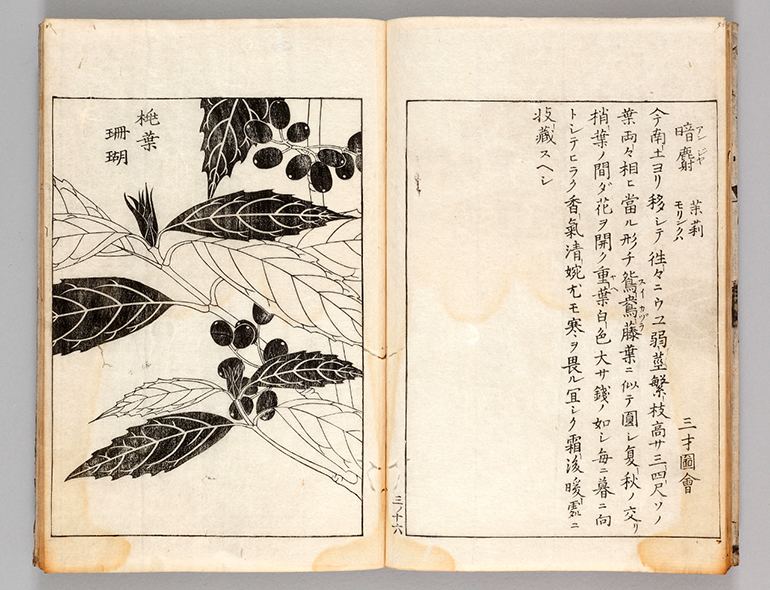 暗麝 アンジャ 茉莉 モリンクハ 三才圖會
今南土ヨリ移シテ徃々ニウユ弱莖繁枝高サ三四尺ソノ
葉両々相ヒ當ル形チ鴛鴦藤葉ニ似テ圓シ夏秋ノ交リ
スイカヅラ
梢葉ノ間ダ花ヲ開ク重葉白色大サ錢ノ如シ毎ニ暮ニ向
トシテヒラク香氣清婉尤モ寒ヲ畏ル冝シク霜後暖處ニ
收藏スヘシ
三ノ十六
桃葉
珊瑚